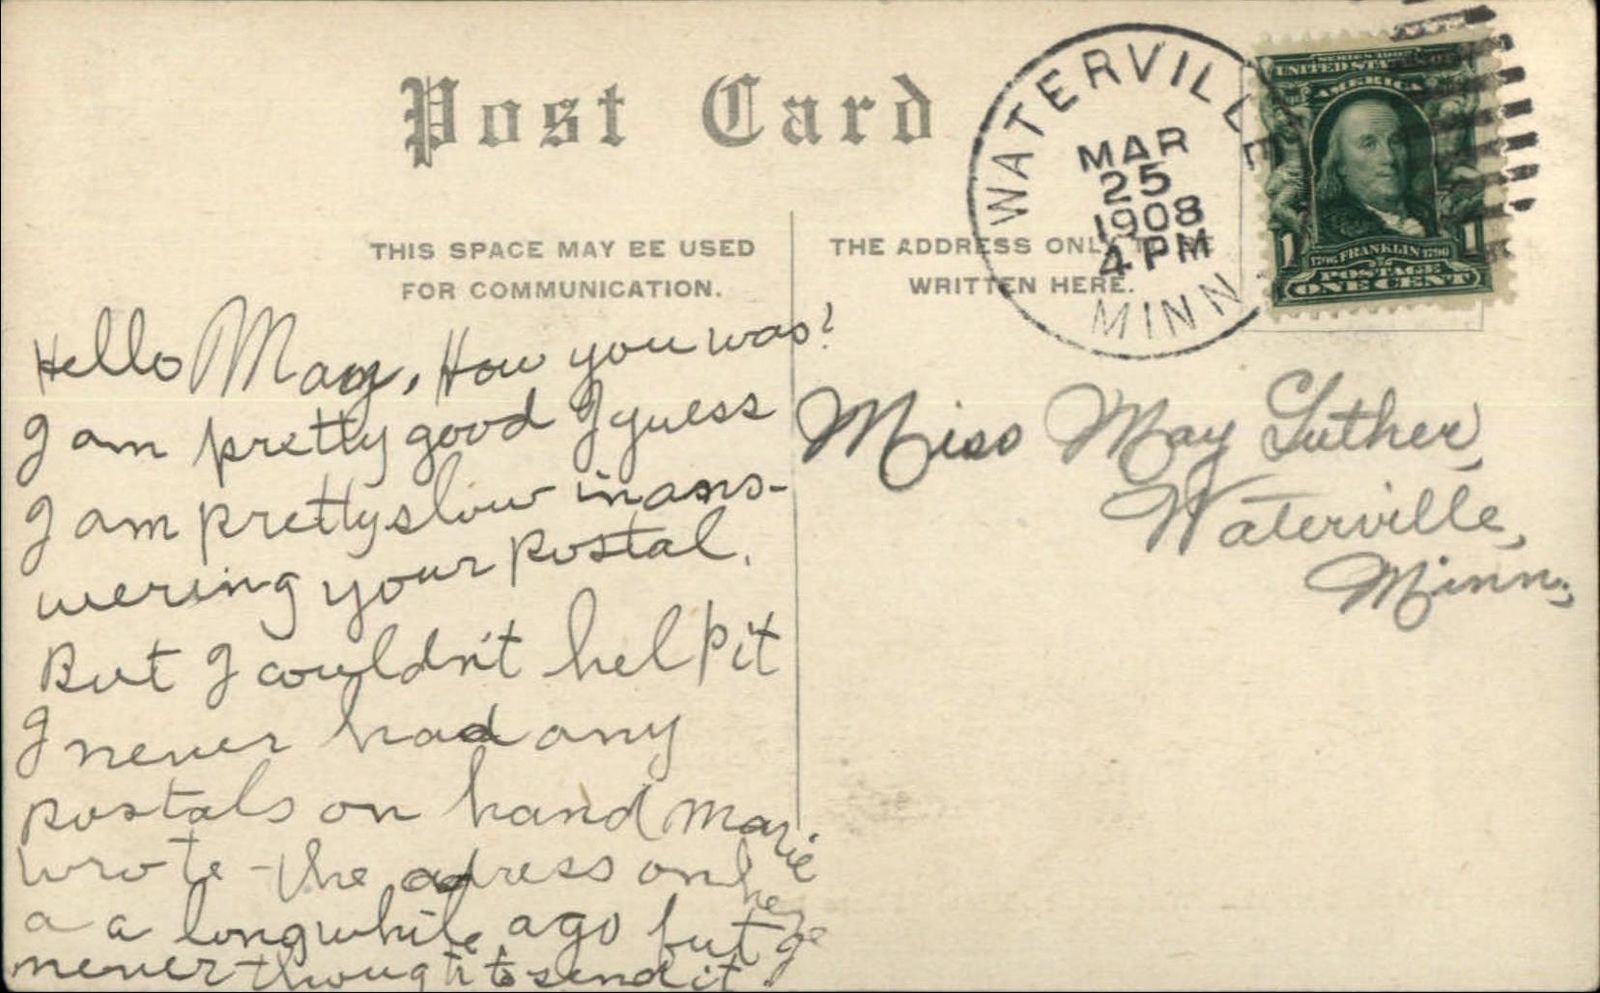 Post Card
THIS SPACE MAY BE USED
FOR COMMUNICATION.
THE ADDRESS ONLY TO BE
WRITTEN HERE.
WATERVILLE
MAR
25
1908
4 PM
MINN
UNITED STATES
AMERICA
1706 FRANKLIN 1790
1 1
POSTAGE
ONE CENT
Hello May, How you was?
I am pretty good I guess
I am pretty slow in ans-
wering your postal.
But I couldn't help it
I never had any
postals on hand Marie
wrote the adress on here
a a long while ago but
never thought to send it.
Miss May Luther,
Waterville,
Minn.,